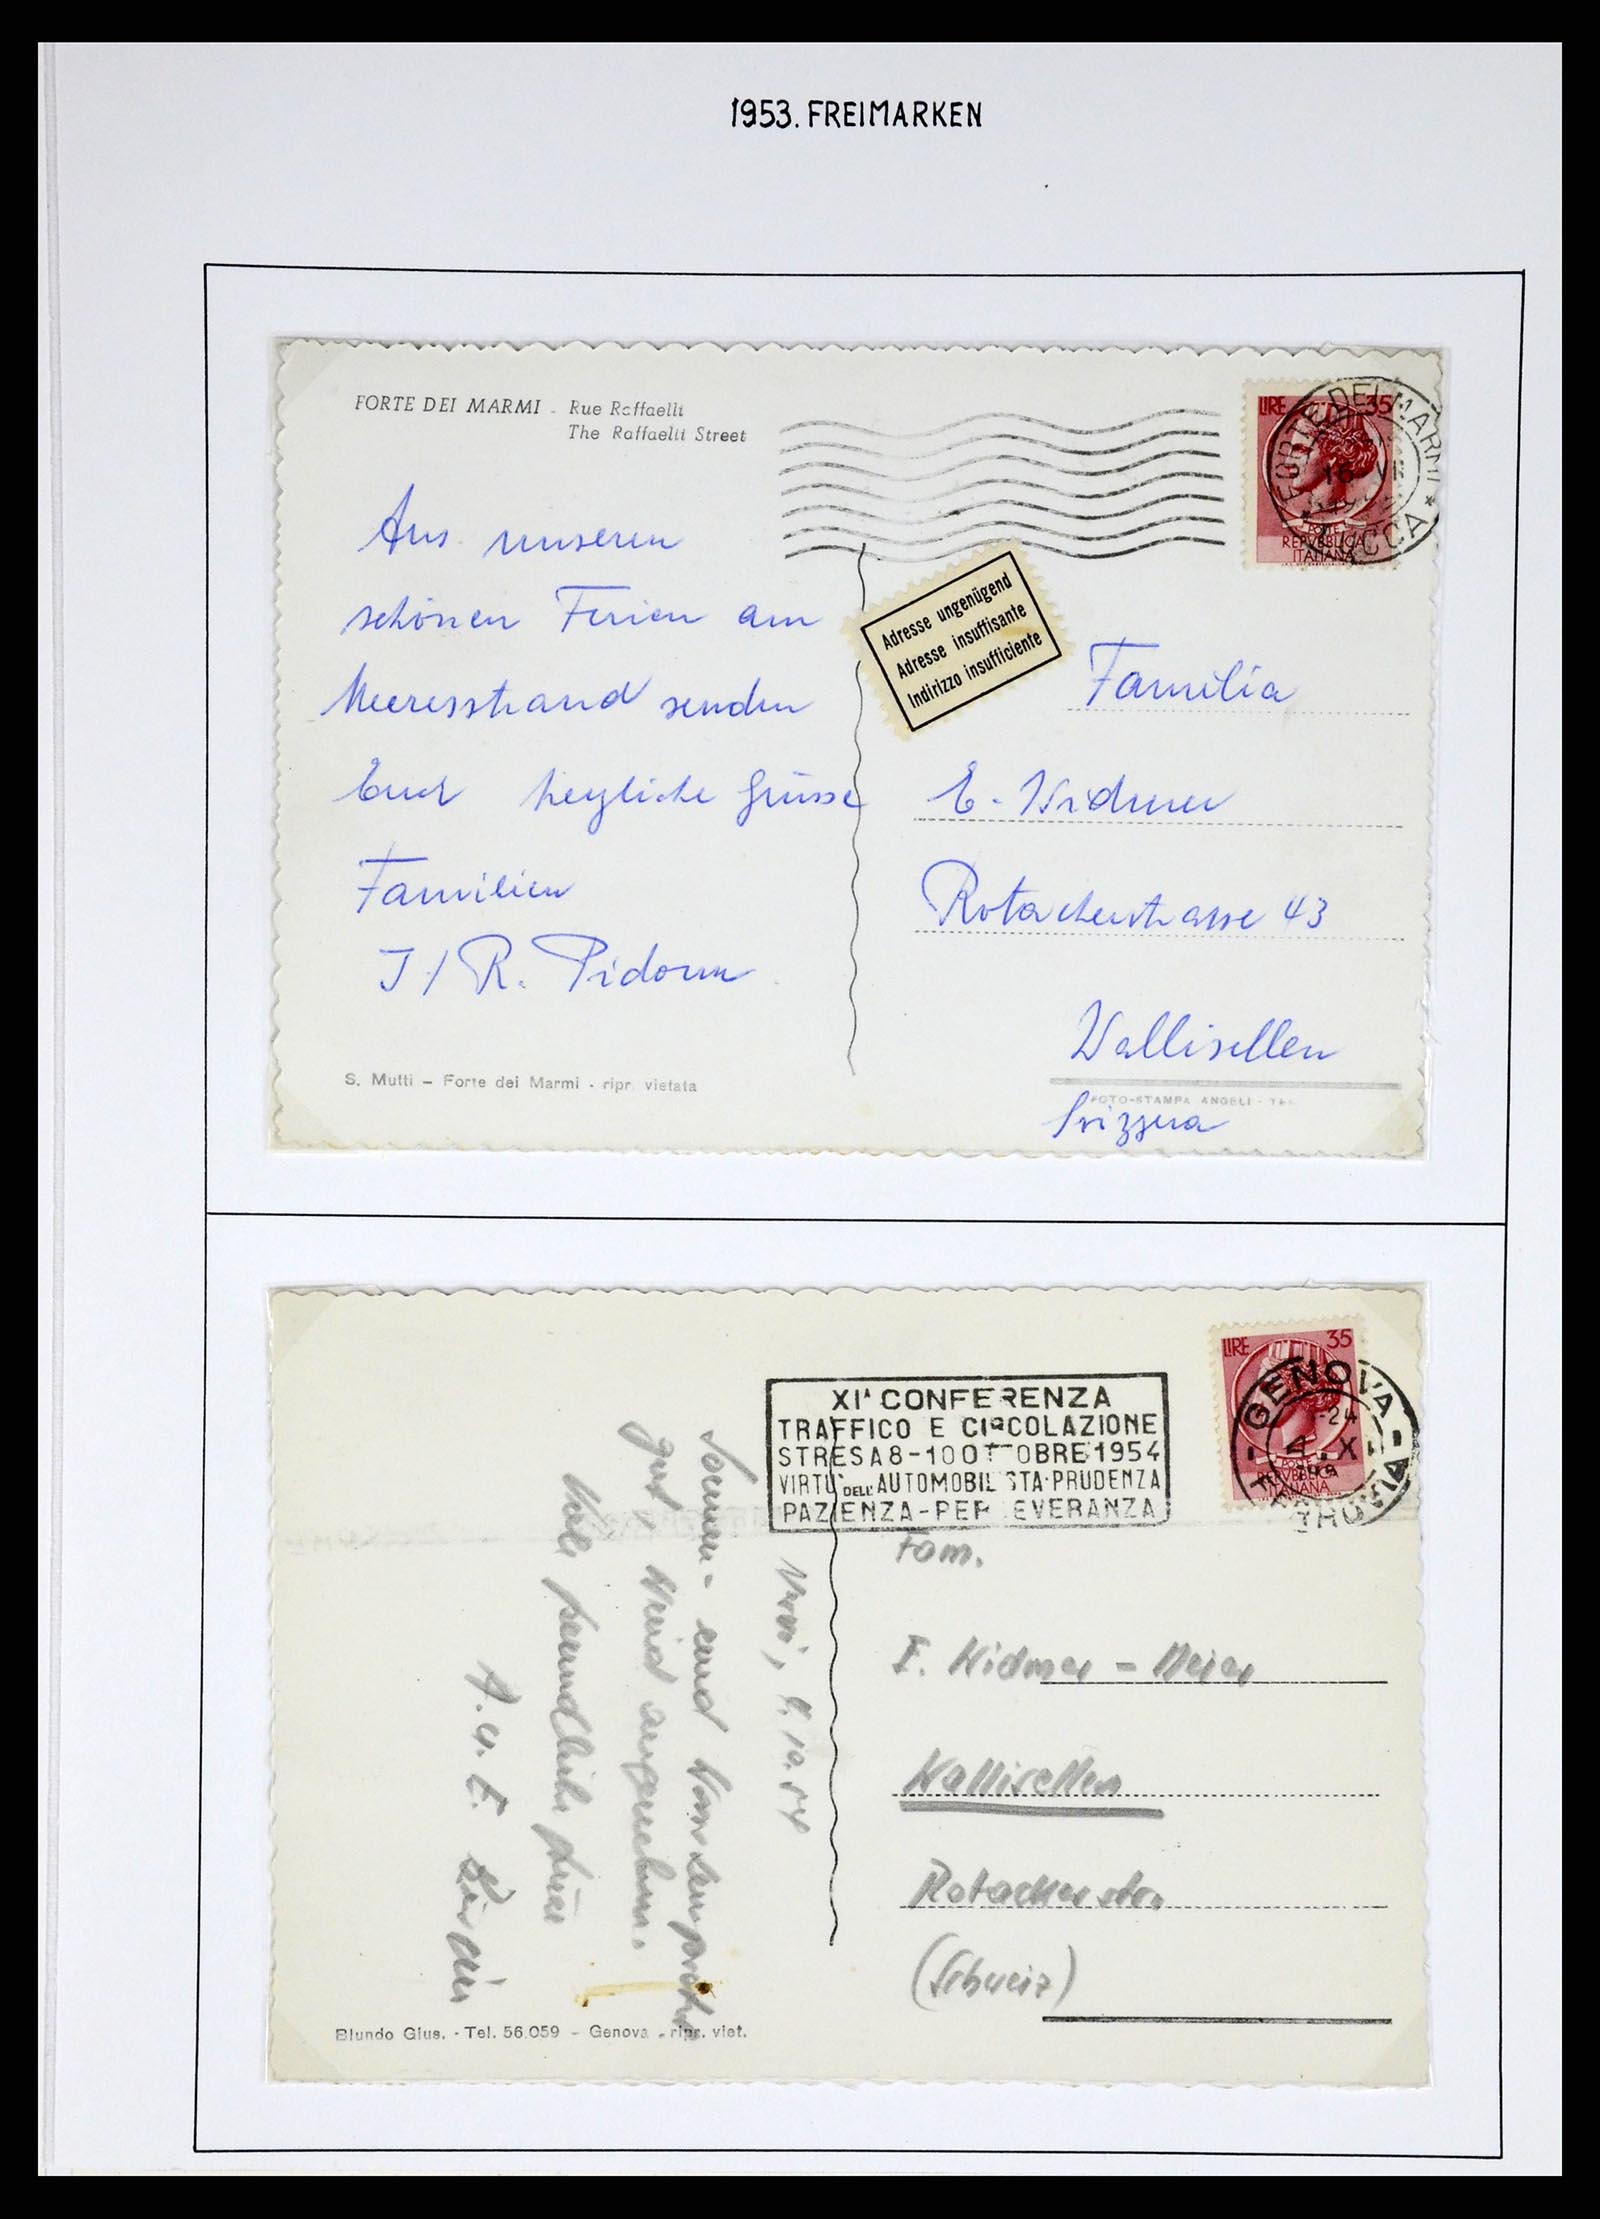 1953. FREIMARKEN
FORTE DEI MARMI - Rue Raffaelli
The Raffaelli Street
LIRE 35
POSTE
REPVBBLICA
ITALIANA
FORTE DEI MARMI
LUCCA
16 VII
Aus unseren
schönen Ferien am
Meeresstrand senden
Euch herzliche Grüsse
Familien
J/R.
Adresse ungenügend
Adresse insuffisante
Indirizzo insufficiente
Familia
E. Widmer
Rotacherstrasse 43
Wallisellen
Svizzera
S. Mutti - Forte dei Marmi - ripr. vietata
FOTO-STAMPA ANGELI -
LIRE 35
POSTE
REPVBBLICA
ITALIANA
GENOVA
FERROVIA
-24
4. X
XIª CONFERENZA
TRAFFICO E CIRCOLAZIONE
STRESA 8-10 OTTOBRE 1954
VIRTU' DELL'AUTOMOBILISTA-PRUDENZA
PAZIENZA-PERSEVERANZA
Nervi, 4.10.54
Sonnen- und
gut, angenehm.
Viele freundliche Grüsse
Fam.
E. Widmer-Meier
Wallisellen
Rotacherstr.
(Schweiz)
Blundo Gius. - Tel. 56.059 - Genova - ripr. viet.